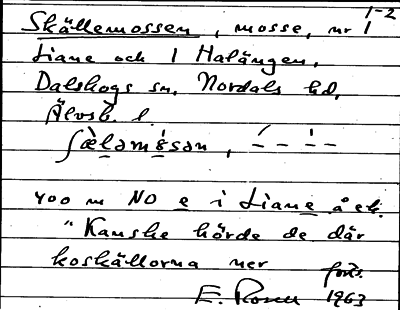 1-2
Skällemossen, mosse, nr 1
Liane och 1 Halängen,
Dalskogs sn, Nordals hd,
Älvsb. l.
400 m NO e i Liane å ek.
"Kanske hörde de där
koskällorna ner
forts.
E. Rosen 1963